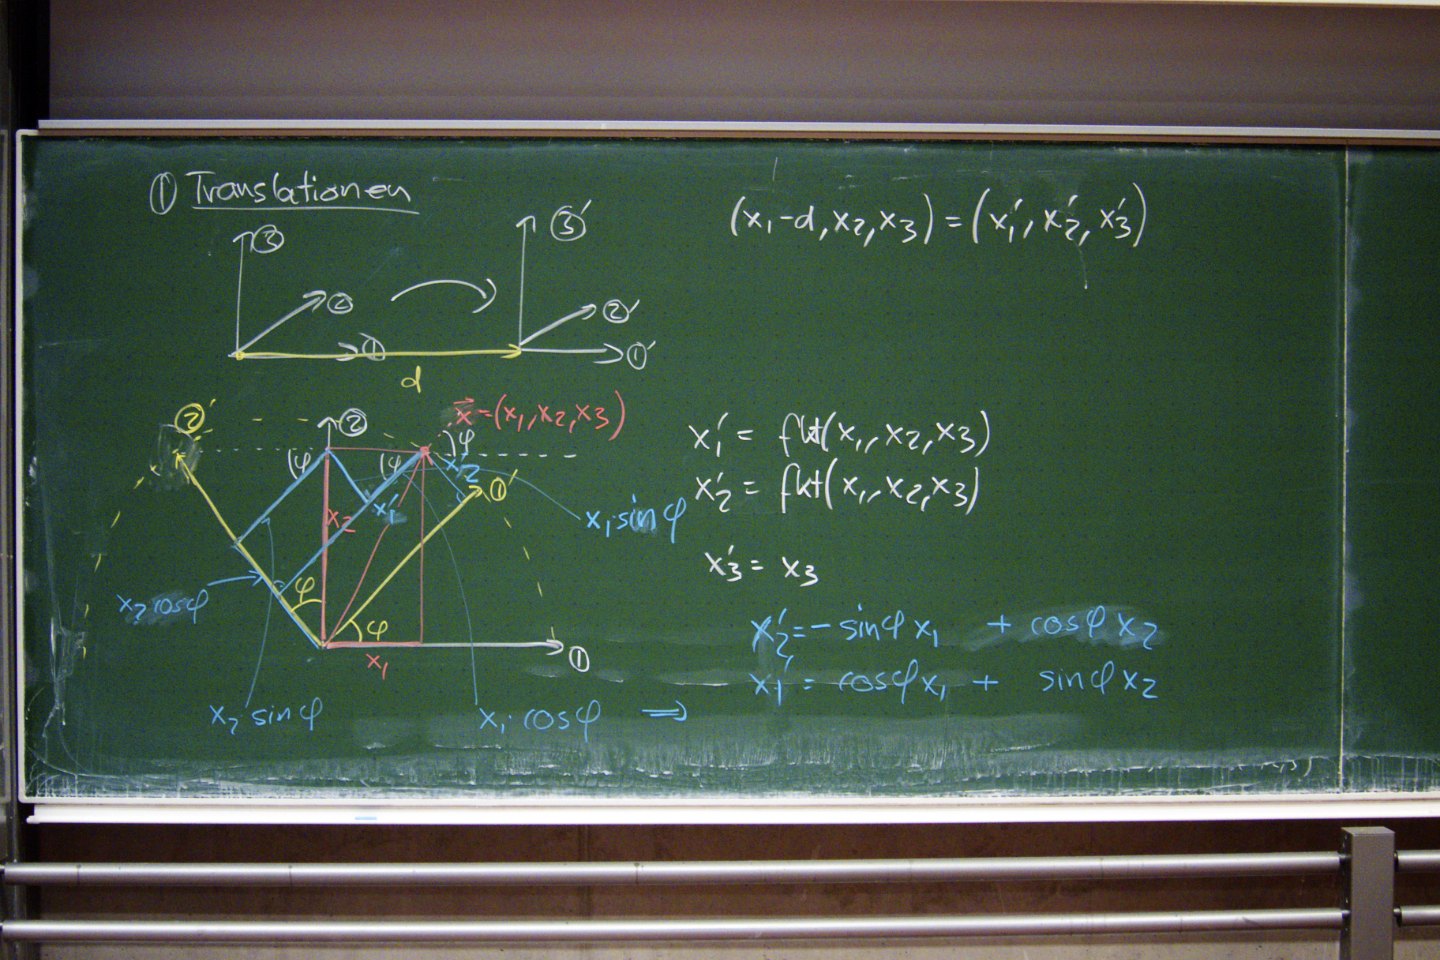 ① Translationen
(x₁-d, x₂, x₃) = (x₁', x₂', x₃')
③
②
①
d
③'
②'
①'
②'
②
x⃗ = (x₁, x₂, x₃)
φ
φ
φ
x₂'
①'
x₁'
x₂
x₁ · sin φ
x₂ cos φ
φ
φ
x₁
①
x₂ sin φ
x₁ · cos φ ⇒
x₁' = fkt(x₁, x₂, x₃)
x₂' = fkt(x₁, x₂, x₃)
x₃' = x₃
x₂' = - sin φ x₁ + cos φ x₂
x₁' = cos φ x₁ + sin φ x₂